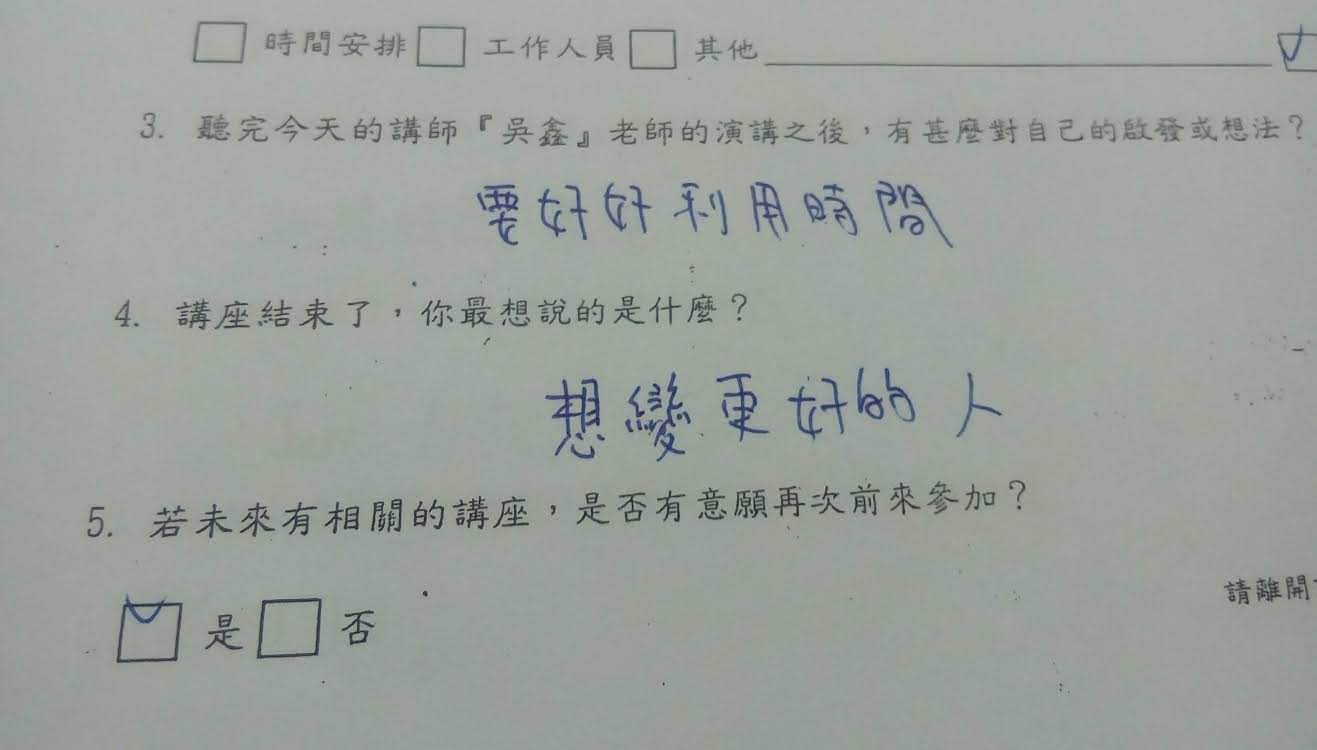 □ 時間安排 □ 工作人員 □ 其他
3. 聽完今天的講師『吳鑫』老師的演講之後，有甚麼對自己的啟發或想法？
要好好利用時間
4. 講座結束了，你最想說的是什麼？
想變更好的人
5. 若未來有相關的講座，是否有意願再次前來參加？
請離開
☑ 是 □ 否